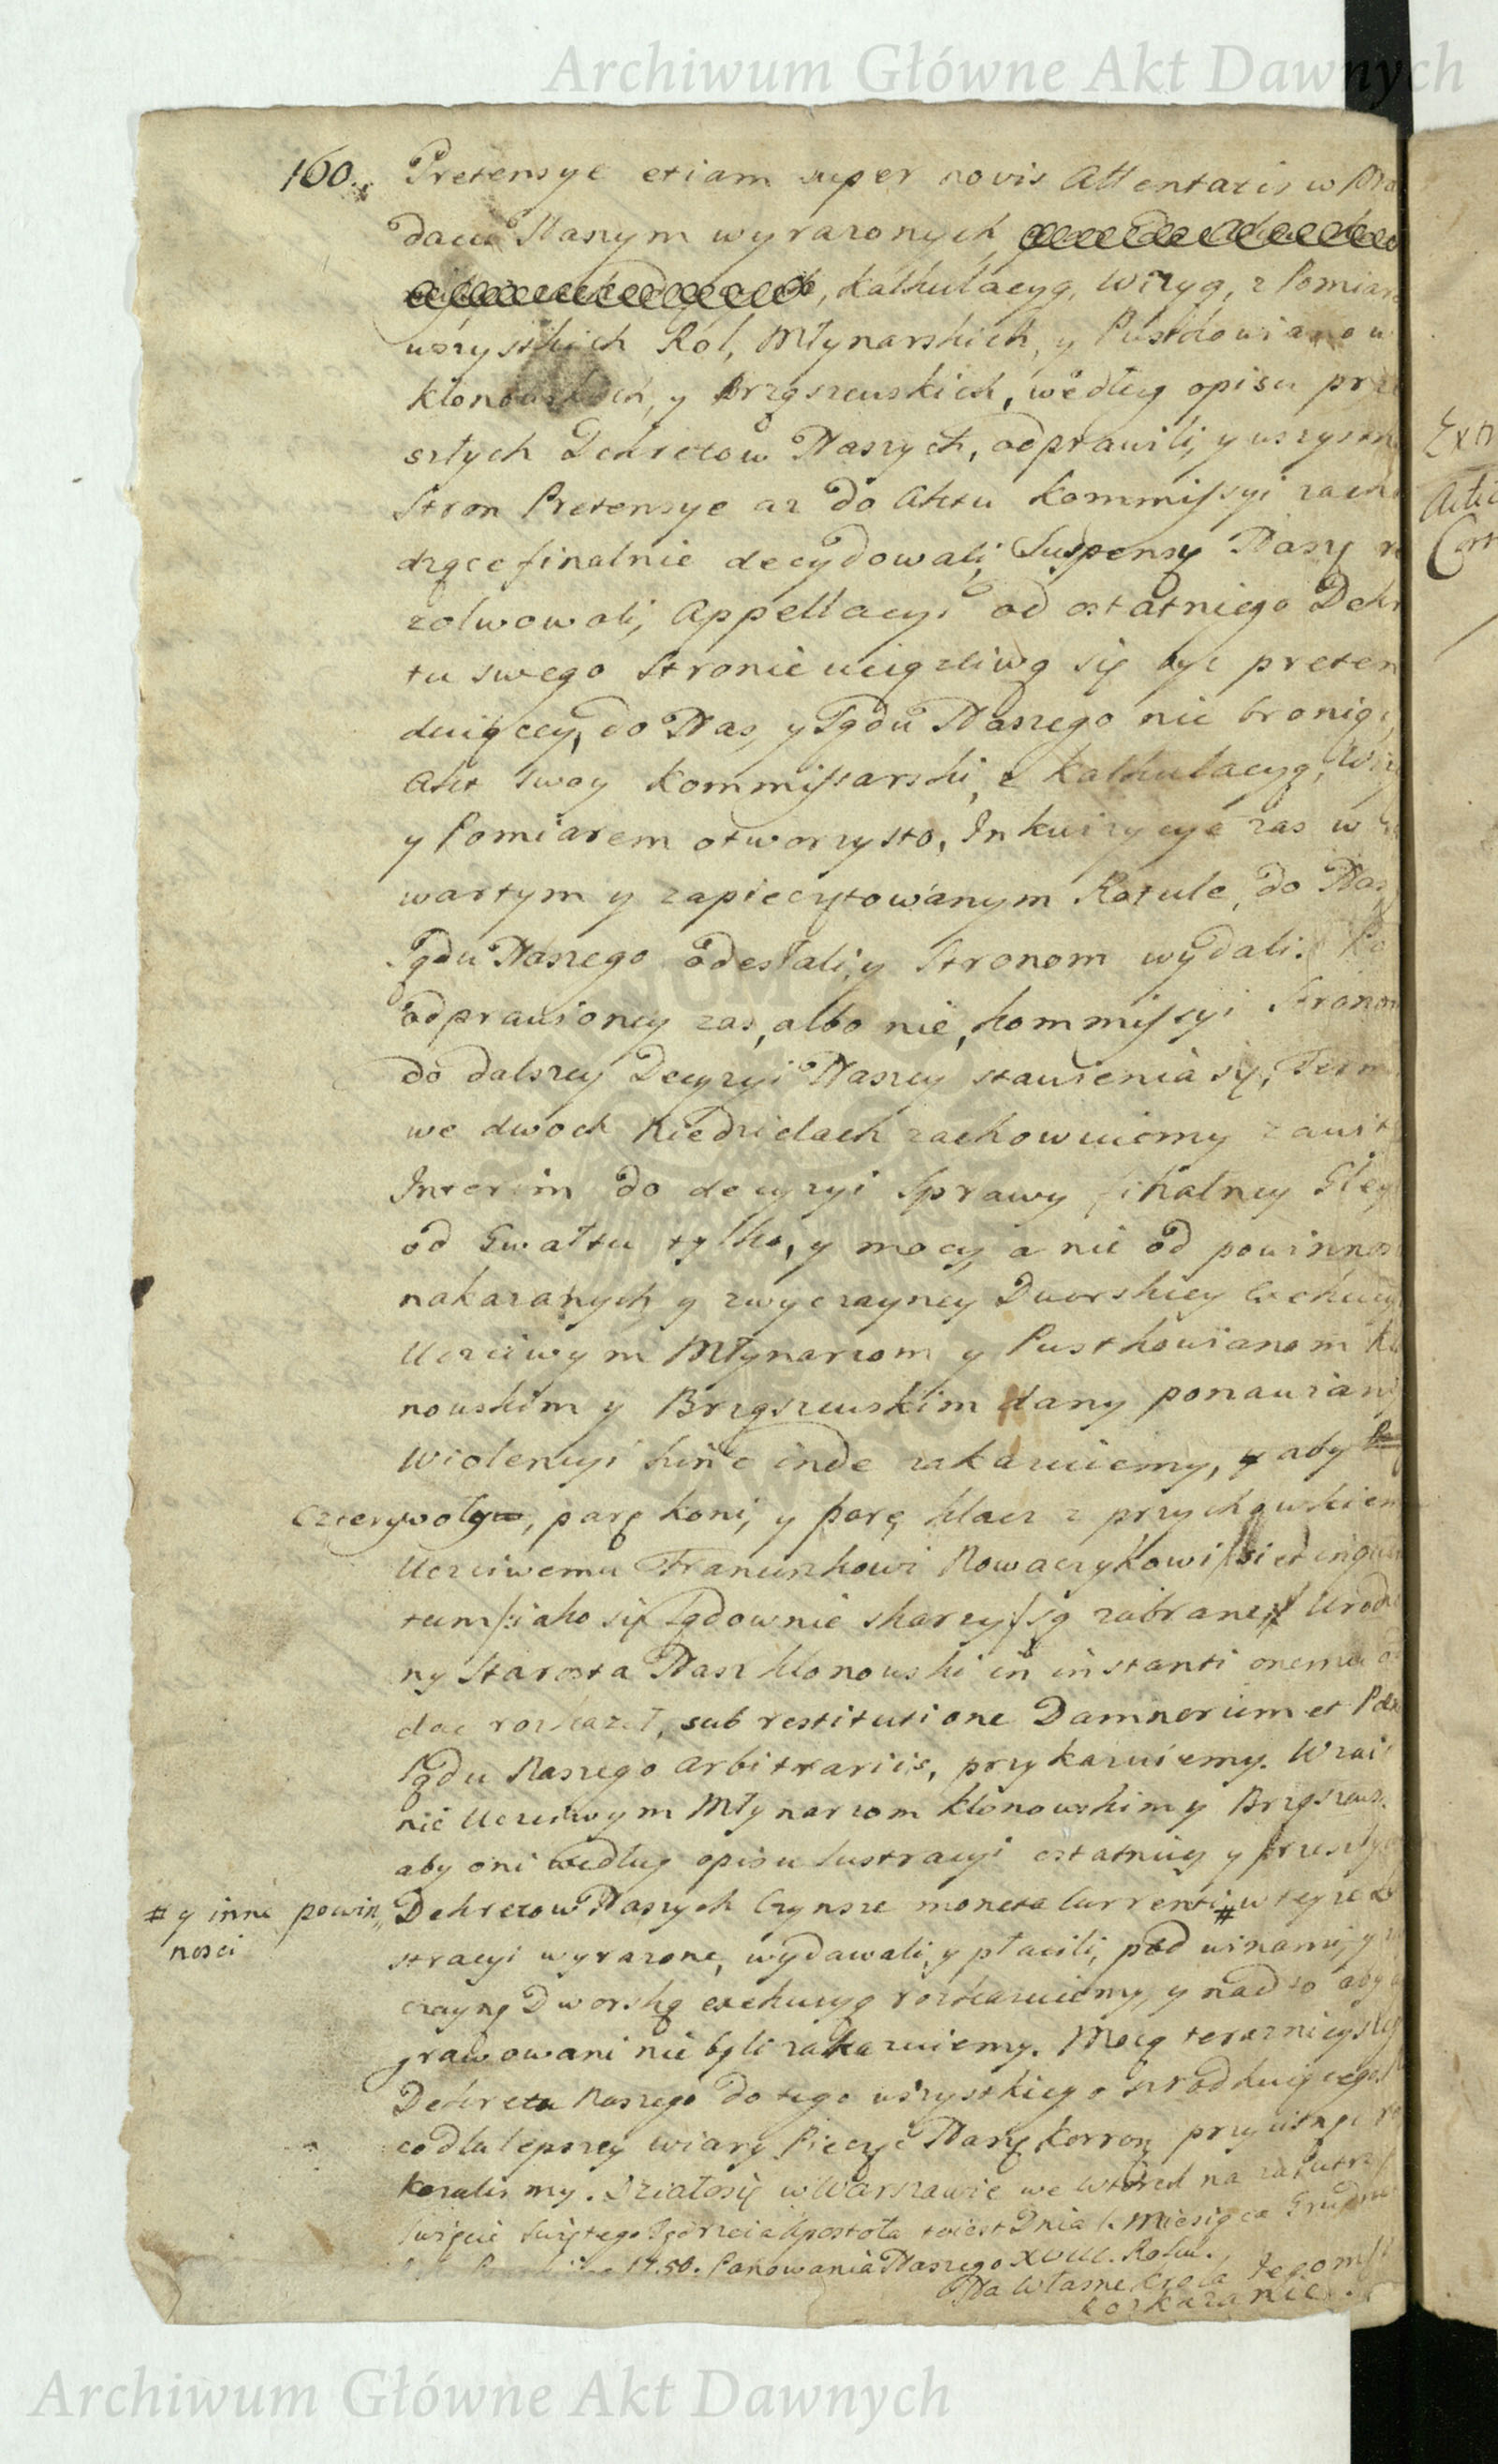 Archiwum Główne Akt Dawnych
160. Pretensye etiam super novis Attentatis w
daciu Naszym wyrazonych
, Kalkulacyą, Wizyą, z Pomiar
wszystkich Ról, Młynarskich, y Pustkowianow
Klonowskich, y Brząszewskich, według opisu prze
szłych Dekretow Naszych, odprawili, y wszystk
Stron Pretensye az do Aktu Kommissyi zacho
dzące finalnie decydowali, Suspensy Naszę re
zolwowali, Appellacyi od ostatniego Dekr
tu swego Stronie uciązliwą się byc preten
duiącey, do Nas, y Sądu Naszego nie bronią,
Akt swoy Kommissarski, z Kalkulacyą, Wizy
y Pomiarem otworzysto, Inkwizycye zas w
wartym y zapieczytowanym Rotule, do Nas,
Sądu Naszego odesłali, y Stronom wydali. Po
odprawioney zas, albo nie, kommissyi Stronom
do dalszey Decyzyi Naszey stawienia się, Term
we dwoch Niedzielach zachowuiemy zawit
Interim do decyzyi Sprawy finalney Gley
od Gwałtu tylko, y mocy, a nie od powinnos
nakazanych y zwyczayney Dworskiey Exekucyi
Uczciwym Młynarzom y Pustkowianom Kło
nowskim y Brząszewskim dany ponawiamy
Wiolencyi hinc inde zakazuiemy, y aby
cztery woły, parę koni, y parę klacz z przychowkiem
Uczciwemu Franciszkowi Nowaczykowi /si et inquan
tum/: iako się Sądownie skarzy/ są zabrane/ Urodzo
ny Starosta Nasz Klonowski in instanti onemu od
dac rozkazał, sub restitutione Damnorum et Pœn
Sądu Naszego arbitrariis, przykazuiemy. Wzaie
nie Uczciwym Młynarzom Klonowskim y Brząszews.
aby oni według opisu lustracyi ostatniey y przeszłych
# y inne powin„ Dekretow Naszych Czynsze moneta currenti # w teyze lu
nosci
stracyi wyrazone, wydawali, y płacili, pod winami, y
czayną Dworską exekucyą rozkazuiemy, y nadto aby
grawowani nie byli zakazuiemy. Mocą teraznieyszego
Dekretu Naszego do tego wszystkiego srzodkuiącego
co dla lepszey wiary Pieczęc Naszę Korronną przycisnąc ro
kazalismy. Działosię w Warszawie we Wtorek nazaiutrz
Swięcie Swiętego Jędrzeia Apostoła to iest Dnia 1. Miesiąca Grudnia
1750. Panowania Naszego XVIII. Roku.
Na Własne Krola Jegomsci
rozkazanie.
Extr
Archiwum Główne Akt Dawnych